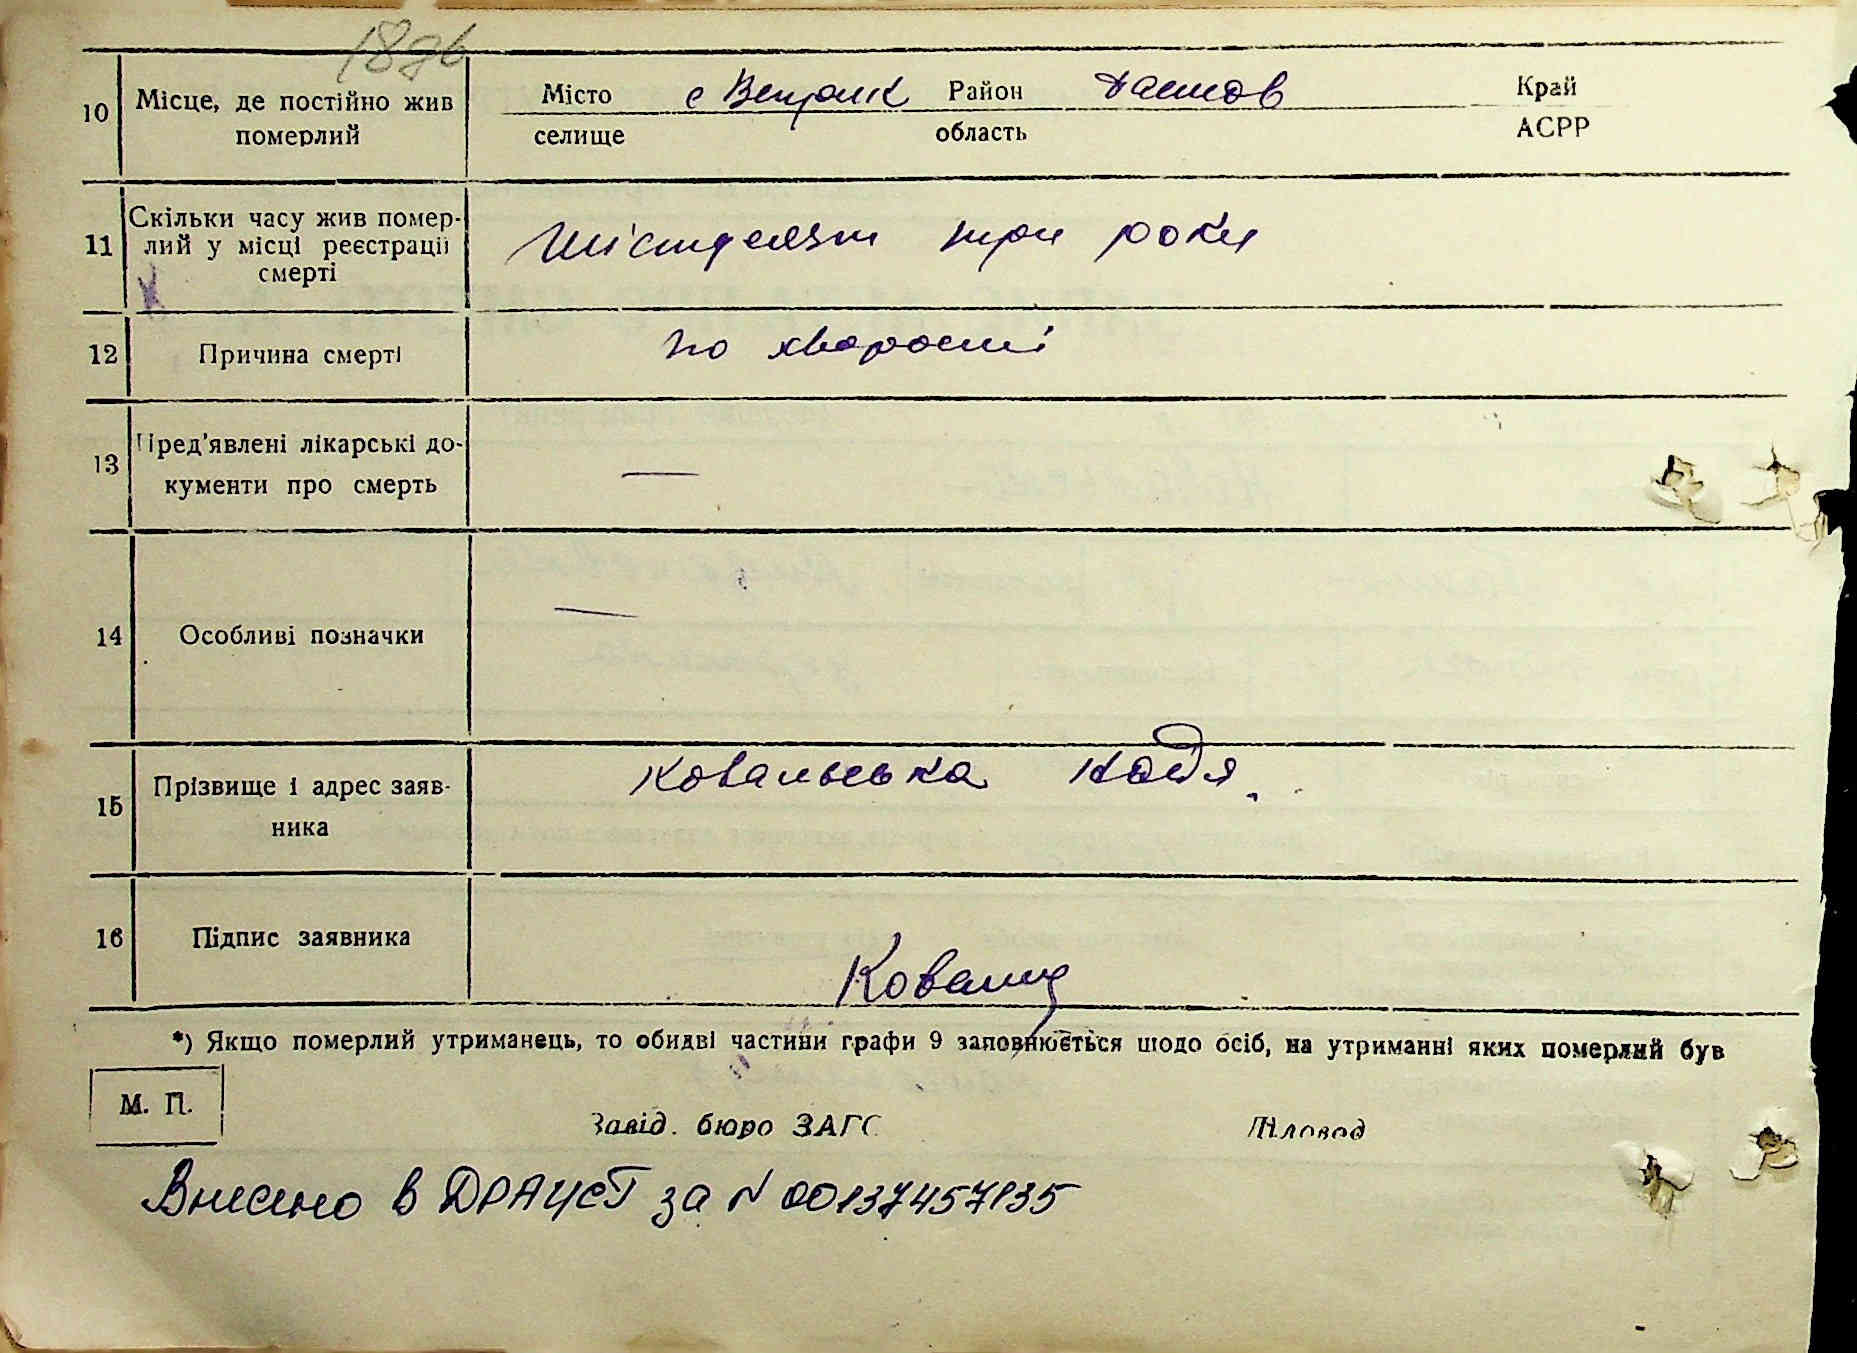 18зв
10 Місце, де постійно жив Місто с Веприк Район Фастов Край
померлий селище область АСРР
Скільки часу жив помер-
11 лий у місці реєстрації Шістдесят три роки
смерті
12 Причина смерті по хворості
Пред'явлені лікарські до-
13 —
кументи про смерть
14 Особливі позначки —
Прізвище і адрес заяв- Ковальська Надя
15
ника
16 Підпис заявника
*) Якщо померлий утриманець, то обидві частини графи 9 заповнюється щодо осіб, на утриманні яких померлий був
М. П.
Завід. бюро ЗАГС Діловод
Внесено в ДРАЦСГ за N 00137457135